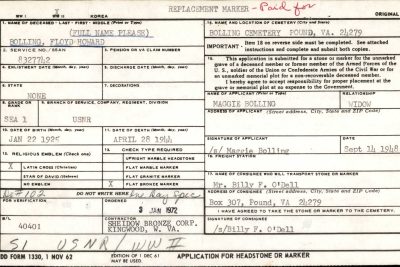 REPLACEMENT MARKER - Paid for
WW I
WW II
X
KOREA
ORIGINAL
1. NAME OF DECEASED - LAST - FIRST - MIDDLE (Print or Type)
(FULL NAME PLEASE)
BOLLING, FLOYD HOWARD
14. NAME AND LOCATION OF CEMETERY (City and State)
BOLLING CEMETERY POUND, VA. 24279
IMPORTANT: Item 18 on reverse side must be completed. See attached instructions and complete and submit both copies.
2. SERVICE OR SSAN
8327742
3. PENSION OR VA CLAIM NUMBER
4. ENLISTMENT DATE (Month, day, year)
5. DISCHARGE DATE (Month, day, year)
15. This application is submitted for a stone or marker for the unmarked grave of a deceased member or former member of the Armed Forces of the U.S., soldier of the Union or Confederate Armies of the Civil War or for an unmarked memorial plot for a non-recoverable deceased member.
I hereby agree to accept responsibility for proper placement at the grave or memorial plot at no expense to the Government.
6. STATE
NONE
NAME OF APPLICANT (Print or type)
MAGGIE BOLLING
RELATIONSHIP
WIDOW
8. GRADE OR RANK
9. BRANCH OF SERVICE, COMPANY, REGIMENT, DIVISION
SEA 1
USNR
10. DATE OF BIRTH (Month, day, year)
JAN 22 1925
11. DATE OF DEATH (Month, day, year)
APRIL 28 1944
SIGNATURE OF APPLICANT
/s/ Maggie Bolling
DATE
Sept 14 1948
12. RELIGIOUS EMBLEM (Check one)
X
LATIN CROSS (Christian)
STAR OF DAVID (Hebrew)
NO EMBLEM
13. CHECK TYPE REQUIRED
UPRIGHT MARBLE HEADSTONE
FLAT MARBLE MARKER
FLAT GRANITE MARKER
X
FLAT BRONZE MARKER
16. FREIGHT STATION
17. NAME OF CONSIGNEE WHO WILL TRANSPORT STONE OR MARKER
Mr. Billy F. O'Dell
ADDRESS OF CONSIGNEE (Street address, City, State and ZIP Code)
Box 307, Pound, VA 24279
DO NOT WRITE HERE
3 JAN 1972
40401
SHEIDOW BRONZE CORP.
KINGWOOD, W. VA.
I HAVE AGREED TO TAKE THE STONE OR MARKER TO THE CEMETERY.
SIGNATURE OF CONSIGNEE
/s/Billy F. O'Dell
S1 USNR/WW II
DD FORM 1330, 1 NOV 62
EDITION OF 1 DEC 61 MAY BE USED.
APPLICATION FOR HEADSTONE OR MARKER